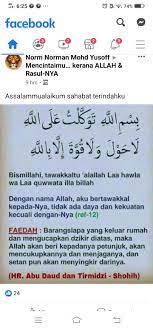 6:25
79%
facebook
Norm Norman Mohd Yusoff ▸
Mencintaimu... kerana ALLAH &
Rasul-NYA
9 hrs
Assalammualaikum sahabat terindahku
بِسْمِ اللَّهِ تَوَكَّلْتُ عَلَى اللَّهِ
لَا حَوْلَ وَلَا قُوَّةَ إِلَّا بِاللَّهِ
Bismillahi, tawakkaltu 'alallah Laa hawla
wa Laa quwwata illa bilah
Dengan nama Allah, aku bertawakkal
kepada-Nya, tidak ada daya dan kekuatan
kecuali dengan-Nya (ref-12)
FAEDAH : Barangsiapa yang keluar rumah
dan mengucapkan dzikir diatas, maka
Allah akan beri kepadanya petunjuk, akan
mencukupkannya dan menjaganya, dan
setan pun akan menyingkir darinya.
(HR. Abu Daud dan Tirmidzi - Shohih)
24